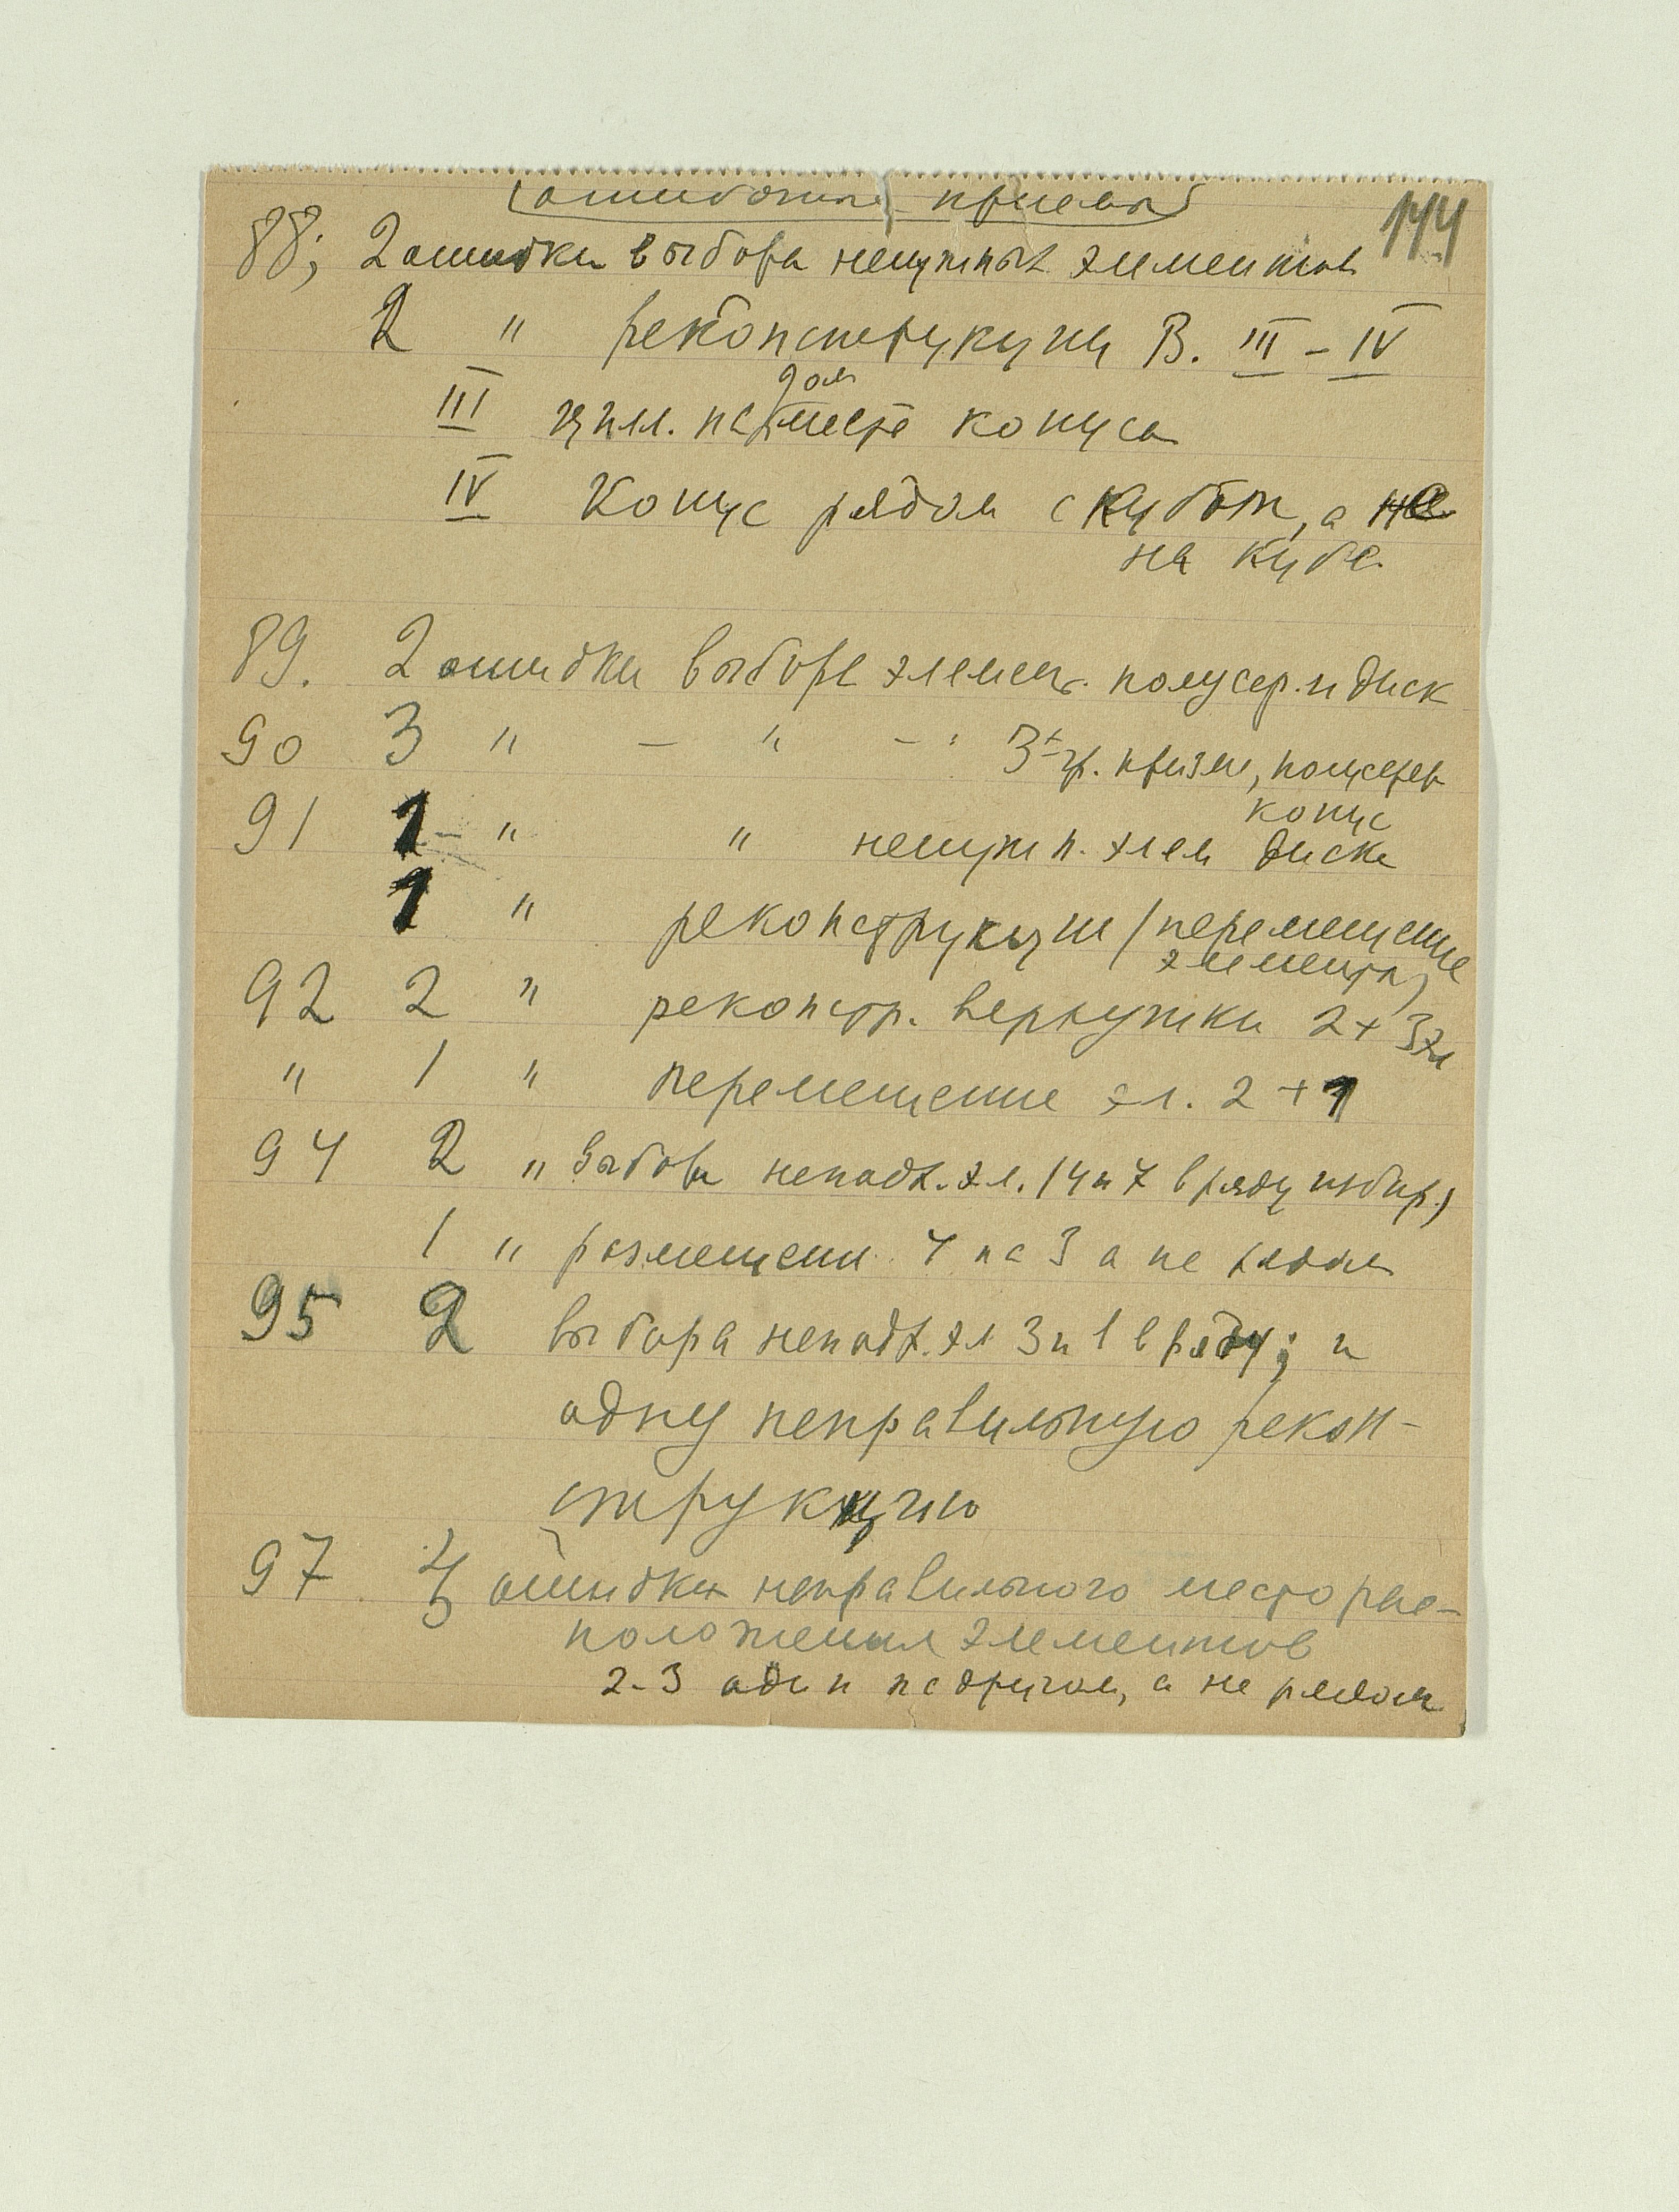 (ошибочные приемы)
144
88; 2 ошибки выбора ненужных элементов
2 " реконструкции В. III – IV
III цил. рядом месте конуса
IV Конус рядом с кубом, а
на кубе.
89. 2 ошибки выборе элемент. полусфер. и диск
90 3 " – " – " 3х гр. призм, полусфер
конус
91 1 – " " ненужн. элем диска
1 " реконструкции (перемещение
элемента)
92 2 " реконстр. верхушки 2 + 3 эл
" 1 " перемещение эл. 2 + 1
94 2 " выбора неподх. эл. (4 и 7 в ряду избир.)
1 " размещени 4 на 3 а не рядом
95 2 выбора неподх. эл 3 и 1 в ряду; и
одну неправильную рекон-
струкцию
97 ошибки неправильного местораc-
положения элементов
2-3 один на другом, а не рядом